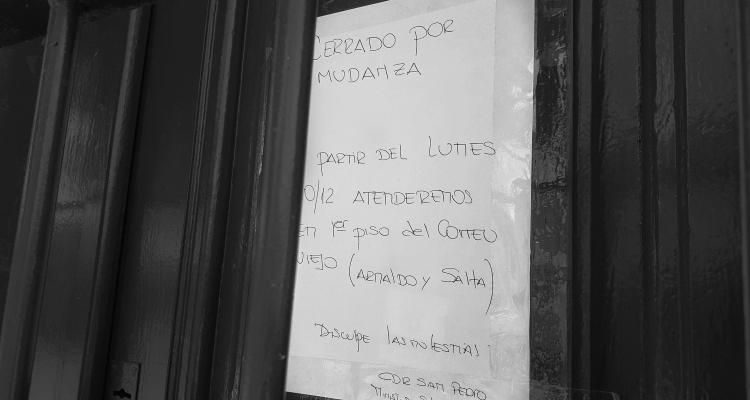 CERRADO POR
MUDANZA
PARTIR DEL LUNES
0/12 ATENDEREMOS
EN 1er PISO del CORREO
VIEJO (ARNALDO y SALTA)
DISCULPE LAS MOLESTIAS
CDR SAN PEDRO